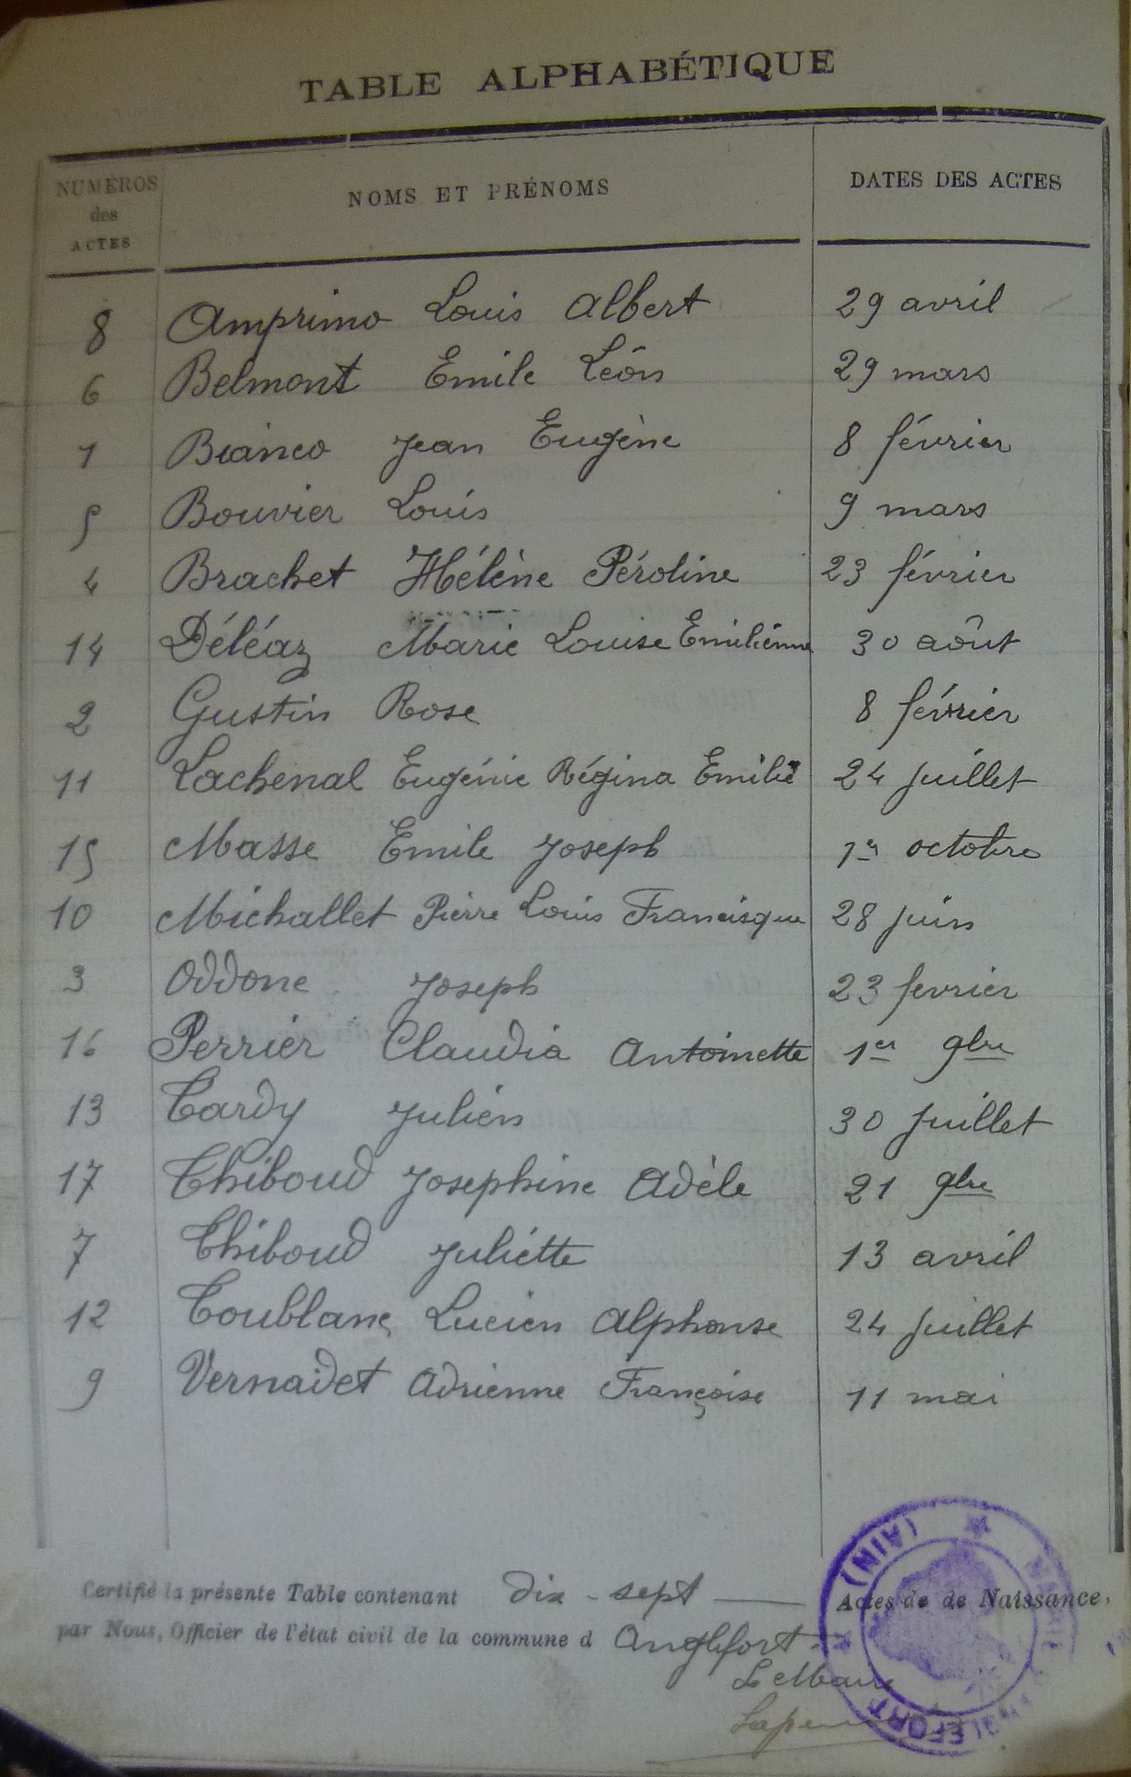 TABLE ALPHABÉTIQUE
NUMÉROS des ACTES NOMS ET PRÉNOMS DATES DES ACTES
8 Amprimo Louis Albert 29 avril
6 Belmont Emile Léon 29 mars
1 Bianco Jean Eugène 8 février
5 Bouvier Louis 9 mars
4 Brachet Hélène Péroline 23 février
14 Déléaz Marie Louise Emiliénne 30 août
2 Gustin Rose 8 février
11 Lachenal Eugénie Régina Emilie 24 juillet
15 Masse Emile Joseph 1er octobre
10 Michallet Pierre Louis Francisque 28 juin
3 Oddone Joseph 23 fevrier
16 Perrier Claudia Antoinette 1er 9bre
13 Tardy Julien 30 juillet
17 Thiboud Josephine Adèle 21 9bre
7 Thiboud Juliette 13 avril
12 Toublanc Lucien Alphonse 24 juillet
9 Vernaidet Adrienne Françoise 11 mai
Certifié la présente Table contenant dix-sept Actes de de Naissance,
par Nous, Officier de l'état civil de la commune d Anglefort
Le Maire
(AIN)